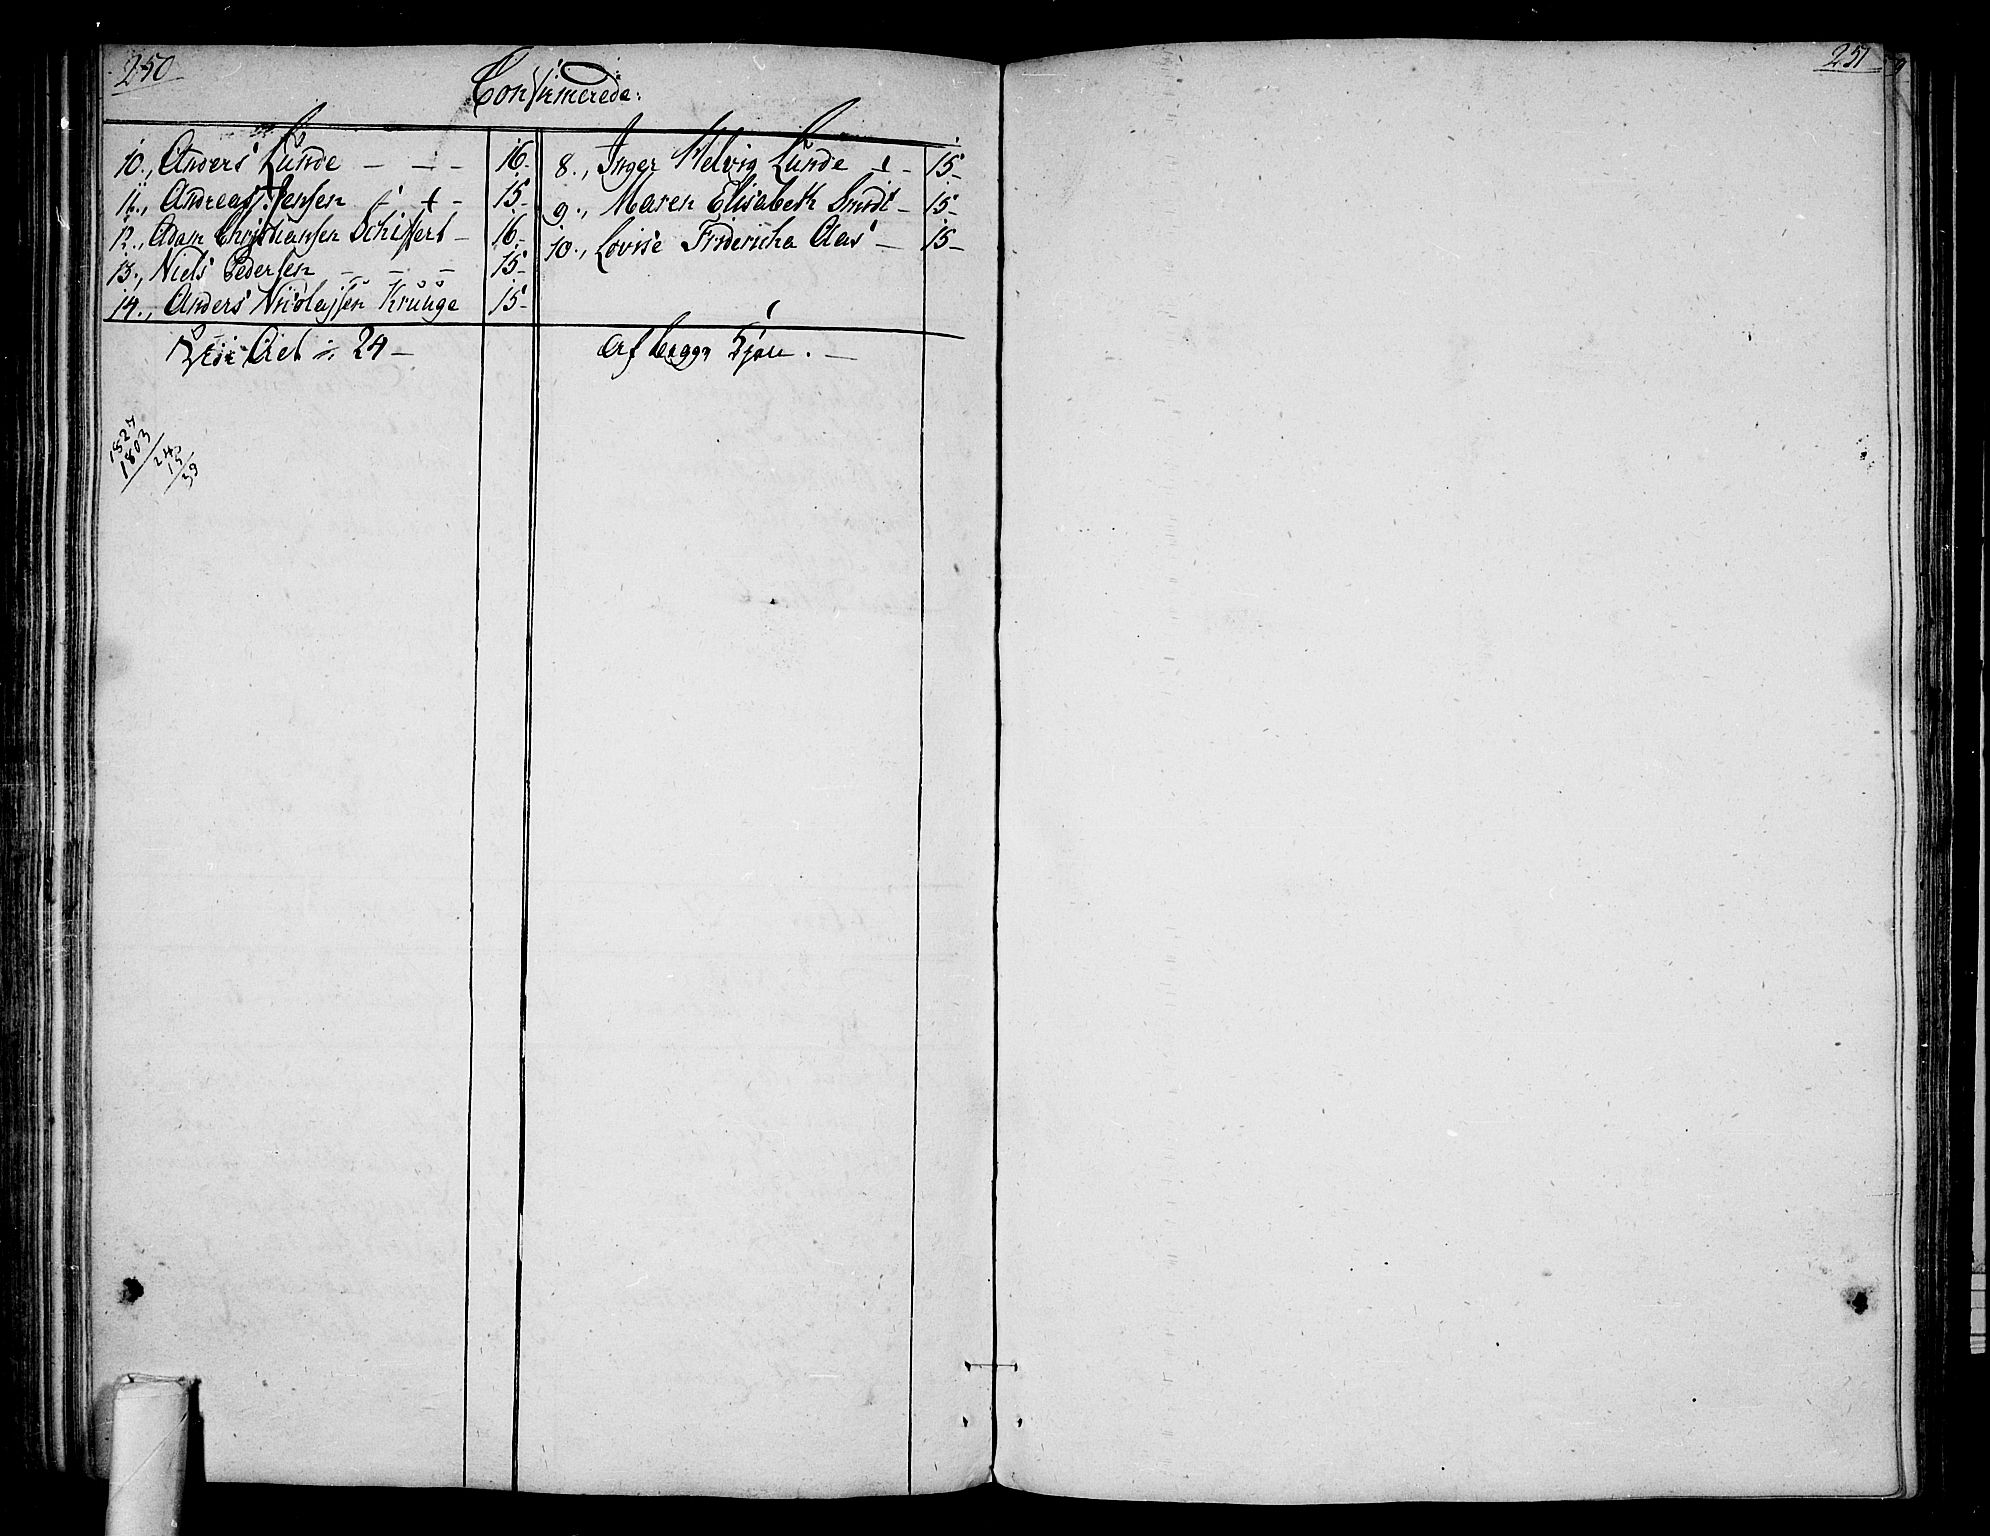 250
Confirmerede:
10., Anders Lunde — — — 16.
11., Andreas Jensen — + — 15.
12., Adam Christiansen Schiffert — 16.
13., Niels Pedersen — — — 15.
14., Anders Nicolajsen Kruuge 15-
24 —
8., Inger Helvig Lunde — 15-
9., Maren Elisabeth Smidt — 15-
10., Lovise Fridericha Aas — 15-
Af begge Kjøn. —
1827
1803
24
15
39
251